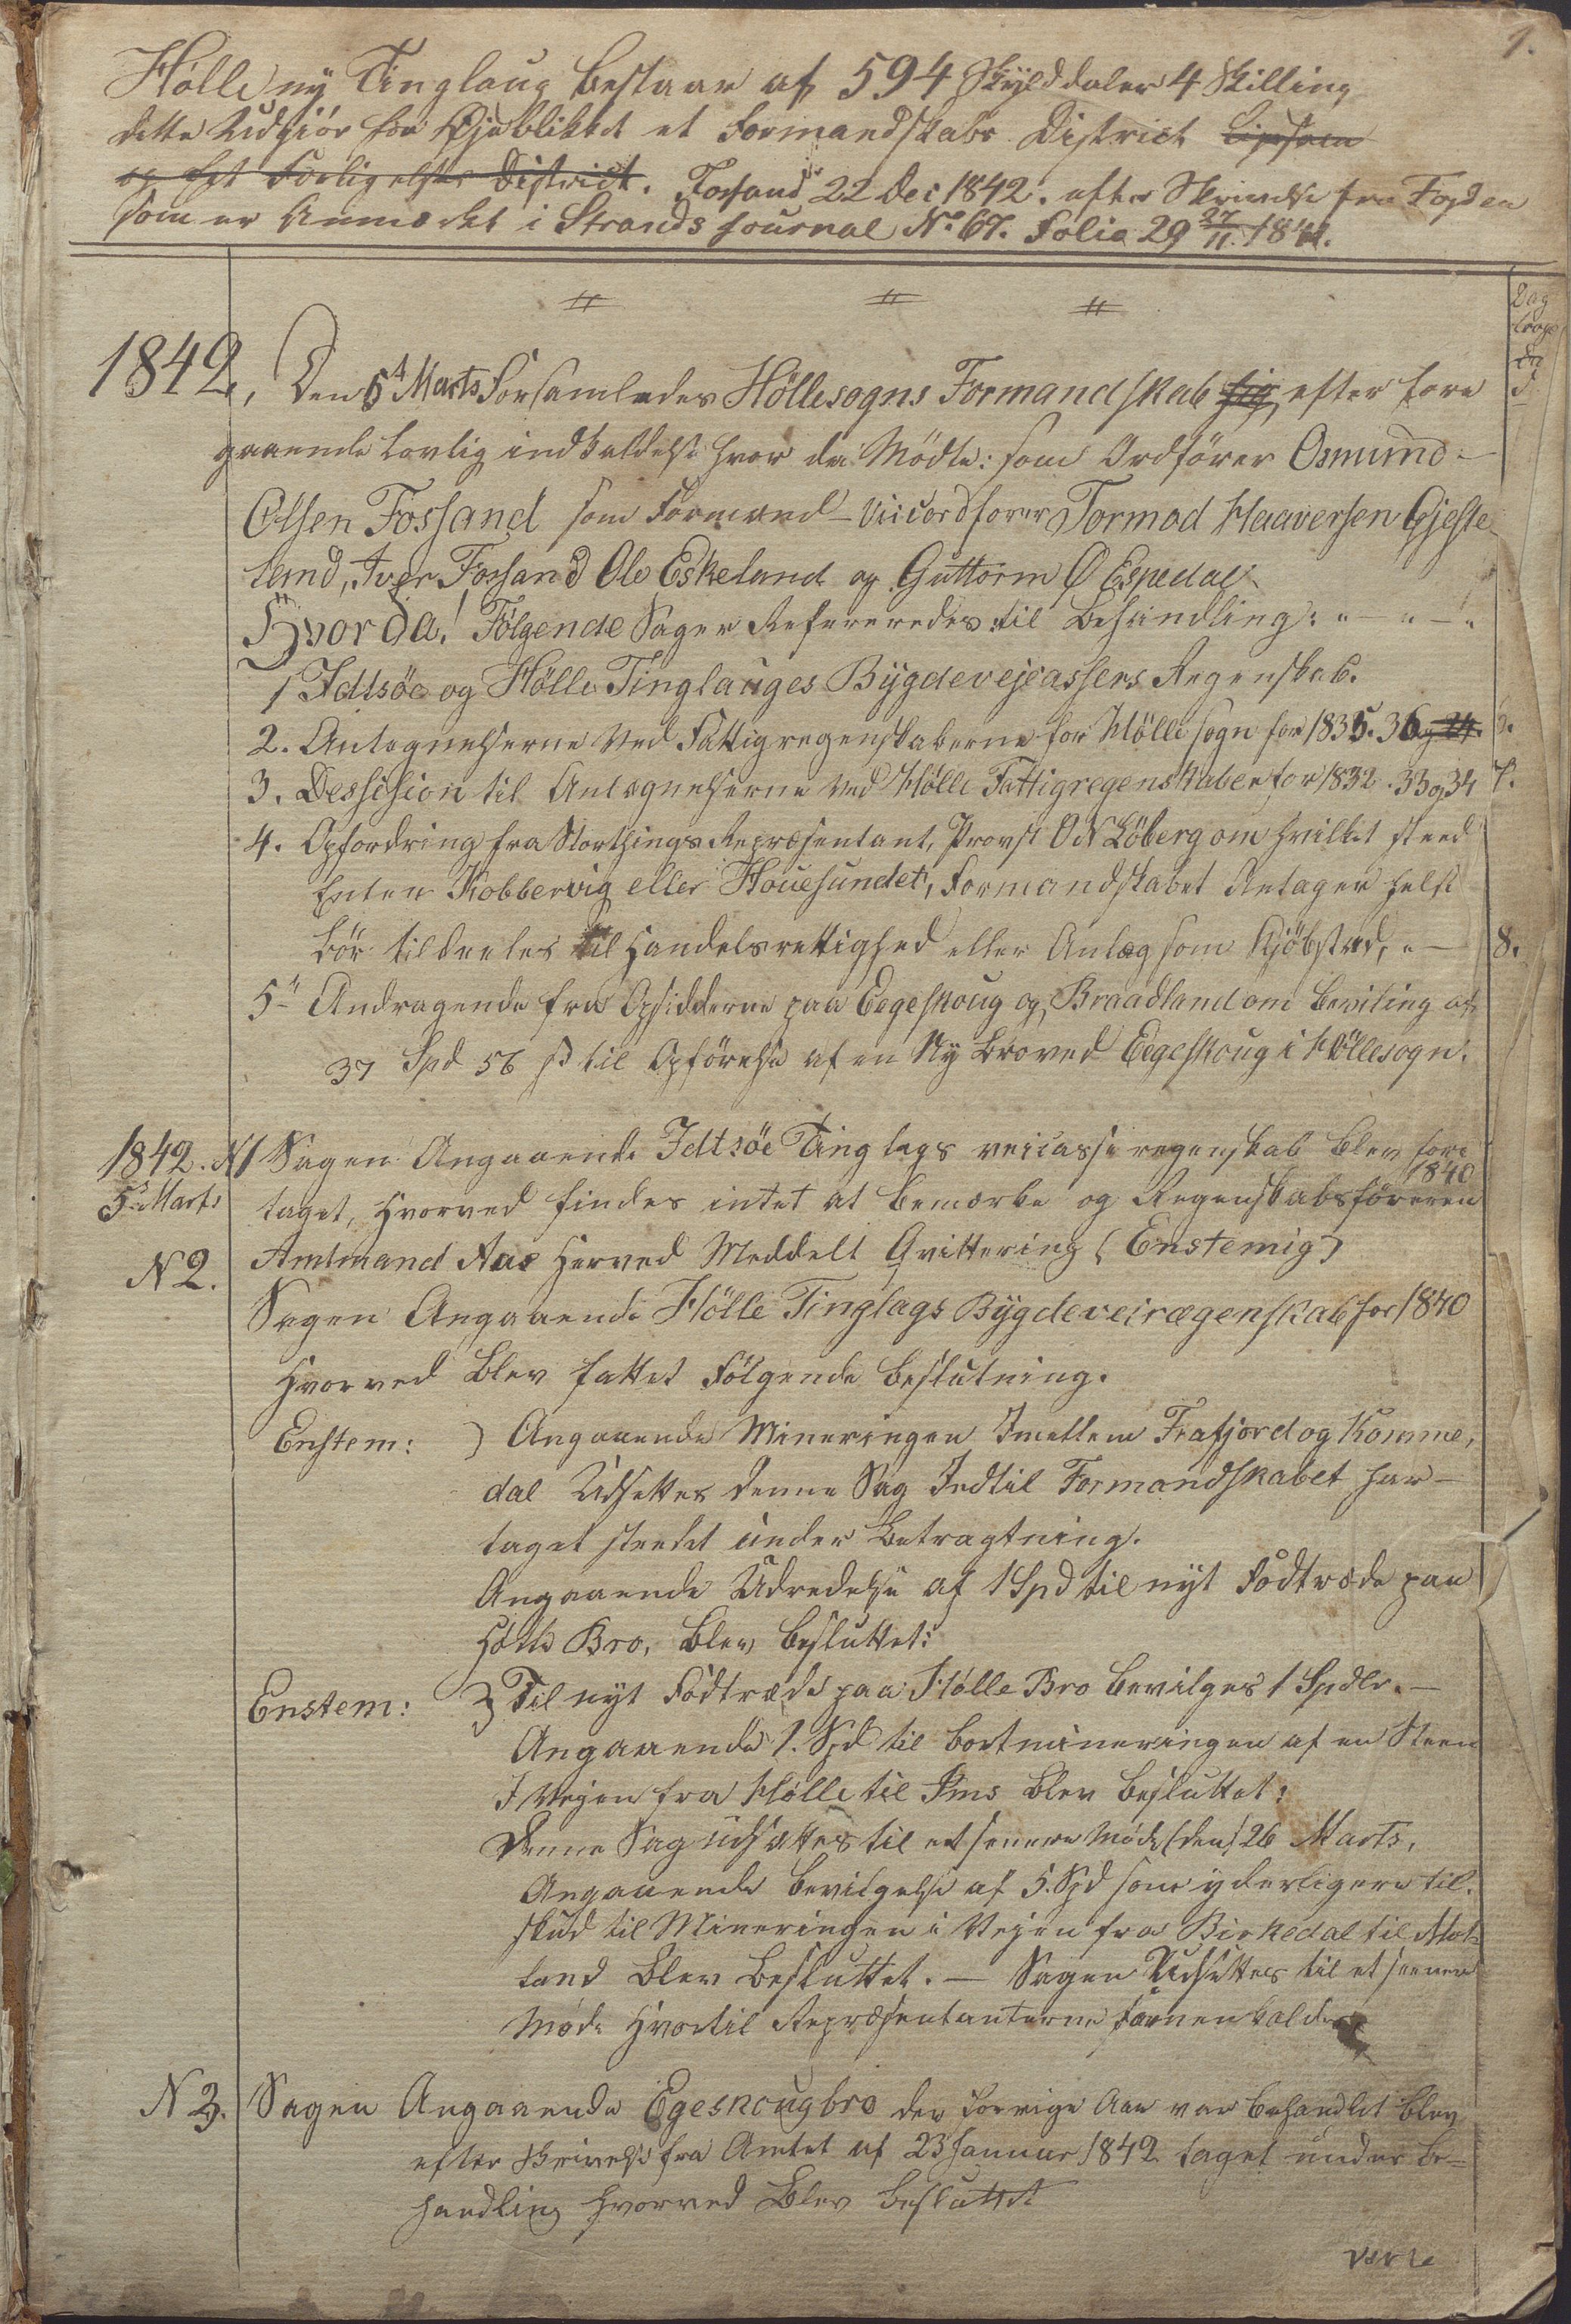 1.
Hölle ny Tinglaug bestaar af 594 Skylddaler 4 Skilling
dette Udgiör for Öjeblikket et Formandskabs District ligesom
og et Forligelses District. Fossand 22 Dec 1842. efter Skrivelse fra Fogden
som er Anmerket i Strands Journal No 67. Folio 29 27/11 1841.
Dag
1842, Den 5te Marts Forsamledes Höllesogns Formandskab sig efter fore
gaaende lovlig indkaldelse hvor da Mödte: som Ordförer Osmund
Olsen Fossand som Formænd Viceordförer Tormod Haaversen Gjeste
land, Iver Fossand Ole Eskeland og Guttorm O Espedal
Hvorda! Fölgende Sager Refereredes til Behandling:
1 Idtsöe og Hölle Tinglauges Bÿgdevejcassers Regenskab.
2. Antegnelserne ved Fattigregenskaberne for Hölle sogn for 1835. 36 og 34.
3. Dessision til Antegnelserne ved Hölle Fattigregenskaber for 1832. 33 og 34 7.
4. Opfordring fra Storthings Repræsentant, Provst O N Löberg om hvilket sted
Enten Kobbervig eller Houesundet, Formandskabet Antager helst
bör tildeeles til Handelsrettighed eller Anlæg som Kjöbsted, 8.
5 Andragende fra Opsidderne paa Eegeskoug og Braadland om beviling af
37 Spd 56 s til Opförelse af en Ny Bro ved Eegeskoug i Höllesogn.
1842. N1 Sagen Angaaende Idtsöe Tinglags veicasse regenskab blev fore
5te Marts taget, hvorved findes intet at bemærke og Regenskabsföreren 1840
Amtmand Aas herved Meddelt Qvittering (Enstemig)
N 2.
Sagen Angaaende Hölle Tinglags Bÿgdeveirægenskab for 1840
hvorved Blev fattet Fölgende beslutning.
Enstem: ) Angaaende Mineringen Imellem Frafjord og Komme,
dal Udsettes denne Sag Indtil Formandskabet har
taget stedet under Betragtning.
Angaaende Udredelse af 1 Spd til nyt Fodtræde paa
Hölle Bro, blev besluttet:
Enstem: } Til nyt Fodtræde paa Hölle Bro bevilges 1 Spdlr.
Angaaende 1. Spd til bortmineringen af en Steen
I Vejen fra Hölle til Ims blev besluttet:
Denne Sag udsættes til et senere Möde (den) 26 Marts,
Angaaende bevilgelse af 5. Spd som yderligere til-
skud til Mineringen i Vejen fra Birkedal til
land blev besluttet. — Sagen Udsettes til et senere
Möde hvortil Repræsentanterne
N 3. Sagen Angaaende Egeskougbro der forrige Aar var behandlet blev
efter skrivelse fra Amtet af 23 Januar 1842 taget under be-
handling hvorved blev besluttet